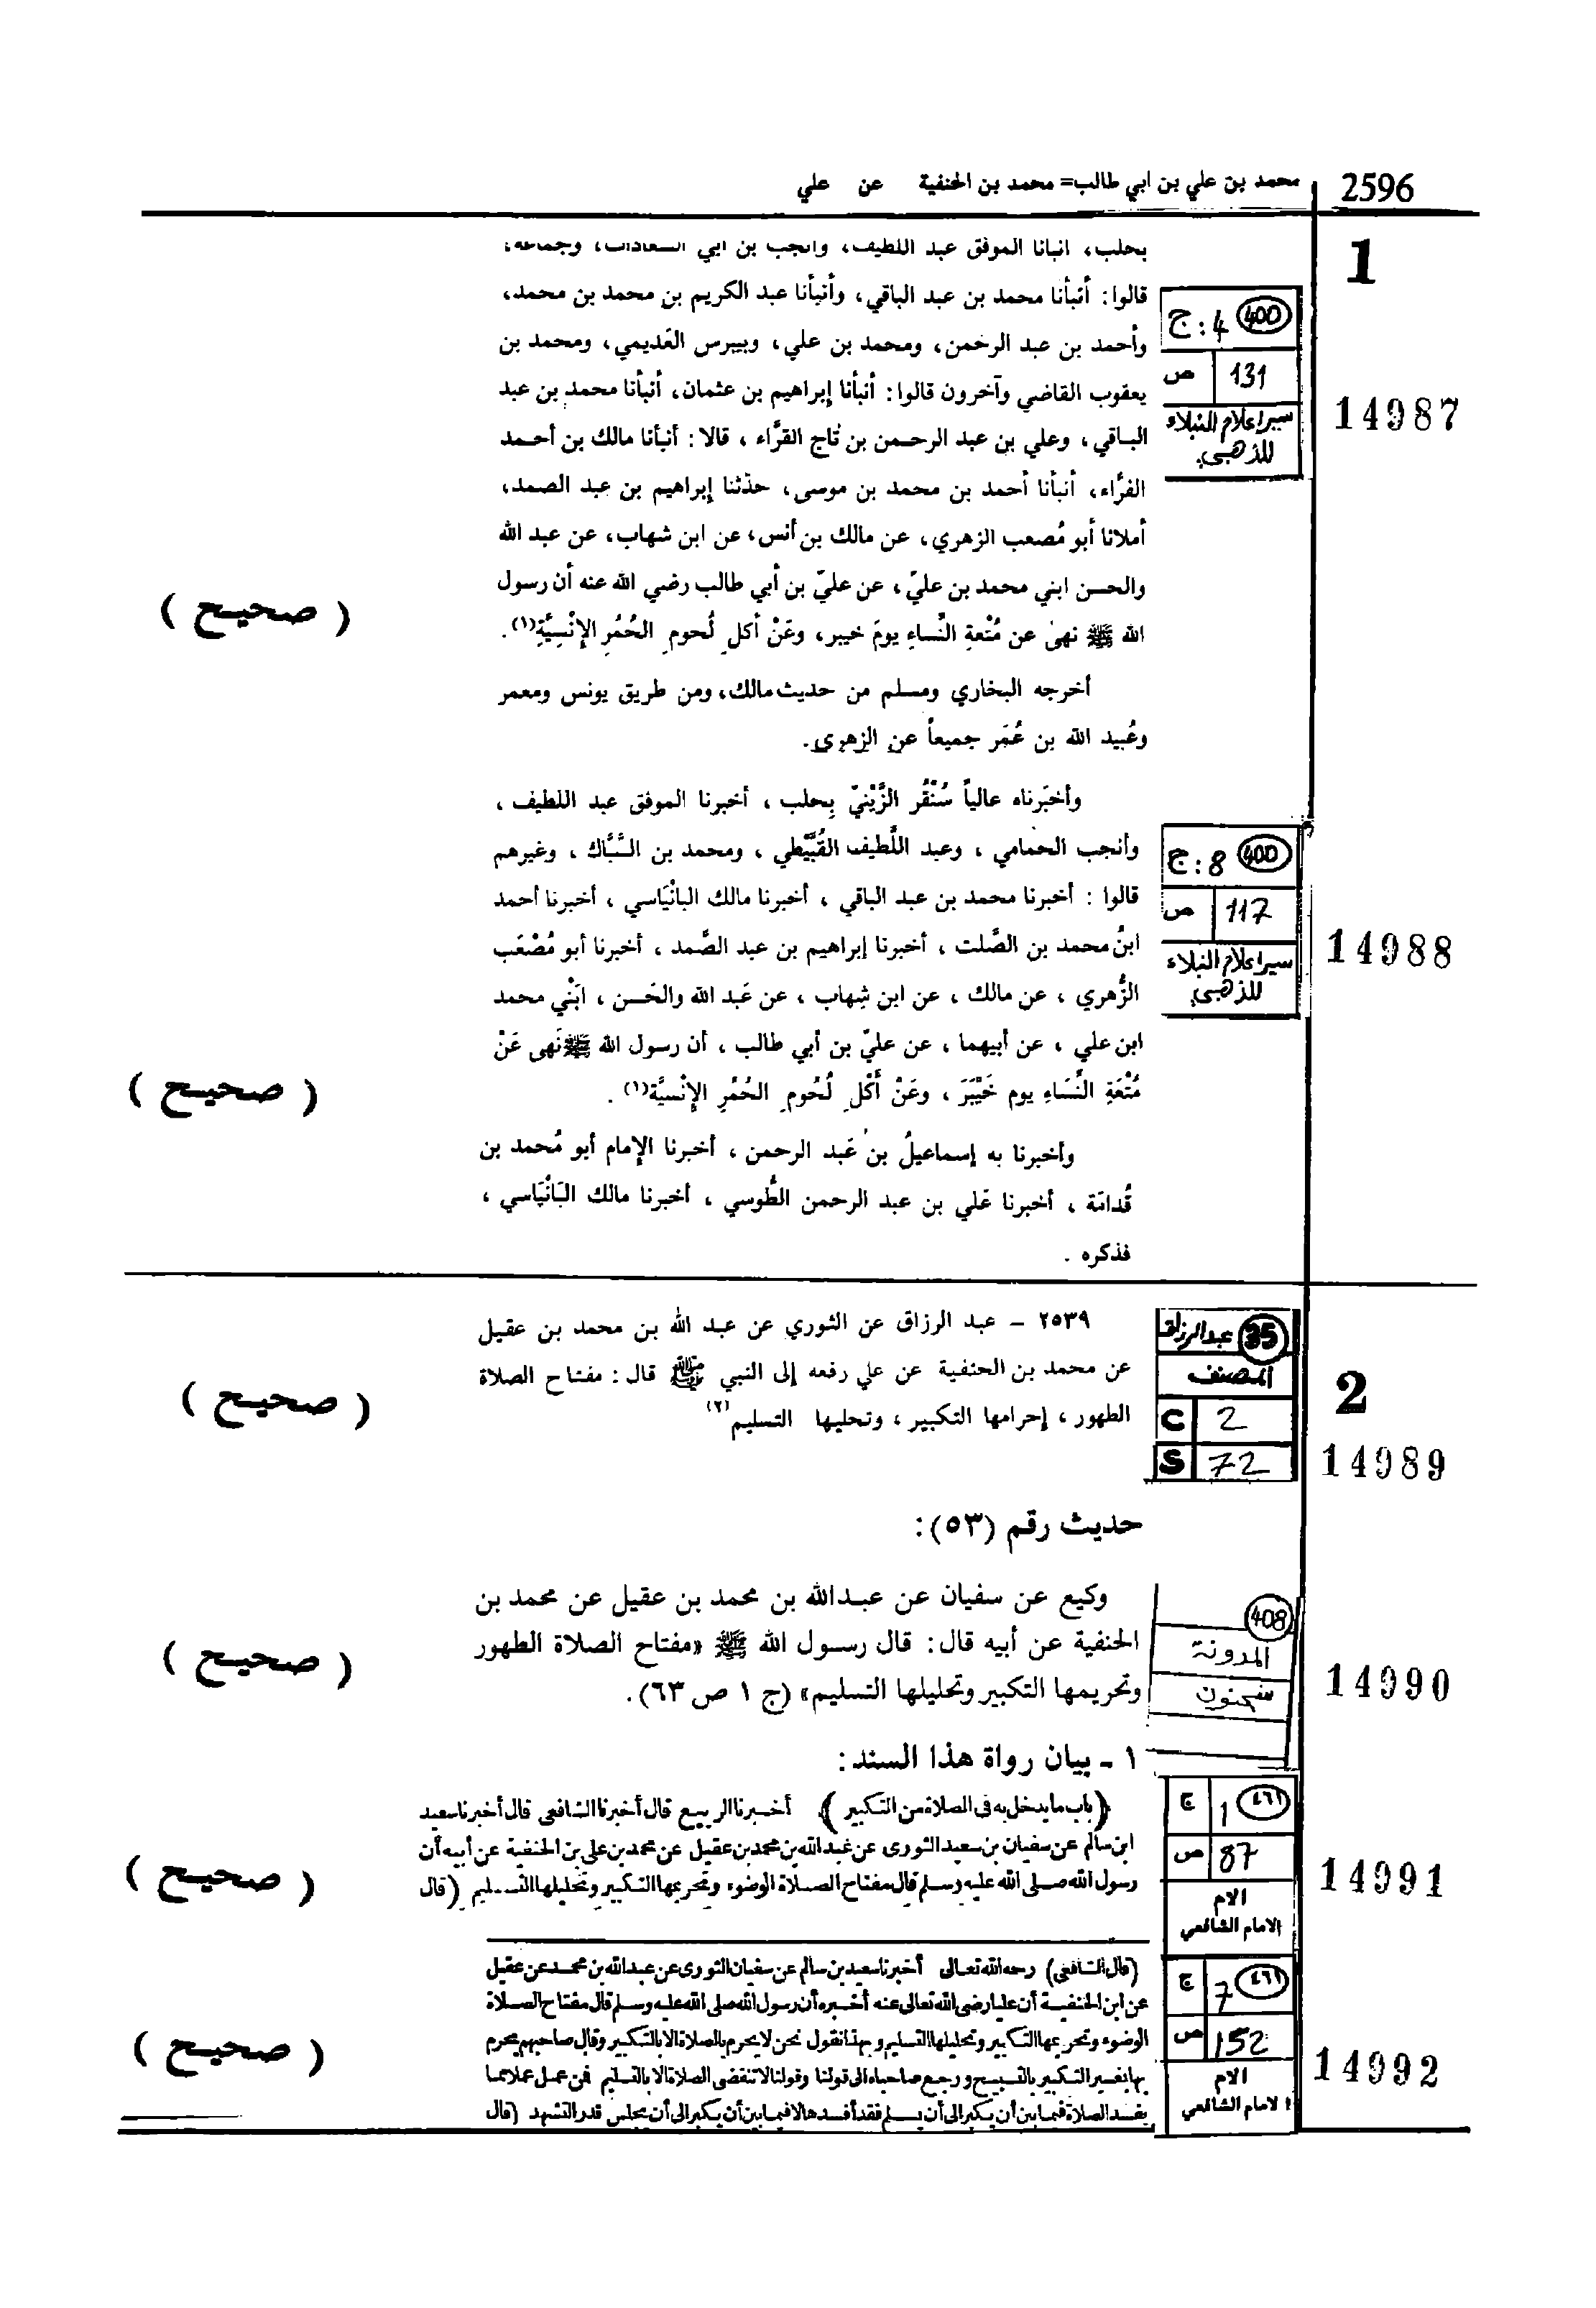 2596
محمد بن علي بن ابي طالب= محمد بن الحنفية عن علي
1
بحلب، انبانا الموفق عبد اللطيف، وانجب بن ابي السعادات، وجماعة،
قالوا: أنبأنا محمد بن عبد الباقي، وأنبأنا عبد الكريم بن محمد بن محمد،
وأحمد بن عبد الرحمن، ومحمد بن علي، وبيبرس العَديمي، ومحمد بن
يعقوب القاضي وآخرون قالوا: أنبأنا إبراهيم بن عثمان، أنبأنا محمد بن عبد
الباقي، وعلي بن عبد الرحمن بن تاج القرَّاء، قالا: أنبأنا مالك بن أحمد
الفرَّاء، أنبأنا أحمد بن محمد بن موسى، حدثنا إبراهيم بن عبد الصمد،
أملانا أبو مُصعب الزهري، عن مالك بن أنس، عن ابن شهاب، عن عبد الله
والحسن ابني محمد بن عليّ، عن عليّ بن أبي طالب رضي الله عنه أن رسول
الله ﷺ نهىٰ عن مُتْعةِ النِّساءِ يومَ خيبر، وعَنْ أكلِ لُحومِ الحُمُرِ الإنْسِيَّةِ(١).
( صحيح )
أخرجه البخاري ومسلم من حديث مالك، ومن طريق يونس ومعمر
وعُبيد الله بن عُمَر جميعاً عن الزهري.
400 ج: 4
ص 131
سير اعلام النبلاء
للذهبي
14987
وأخبَرناه عالياً سُنْقُر الزَّيْنيّ بِحلب ، أخبرنا الموفق عبد اللطيف ،
وأنجب الحمامي ، وعبد اللَّطيف القُبَّيْطي ، ومحمد بن السَّبَّاك ، وغيرهم
قالوا : أخبرنا محمد بن عبد الباقي ، أخبرنا مالك البانْيَاسي ، أخبرنا أحمد
ابنُ محمد بن الصَّلت ، أخبرنا إبراهيم بن عبد الصَّمد ، أخبرنا أبو مُصْعَب
الزُّهري ، عن مالك ، عن ابن شِهاب ، عن عَبد الله والحَسن ، ابْنَي محمد
ابن علي ، عن أبيهما ، عن عليّ بن أبي طالب ، أن رسول الله ﷺ نَهى عَنْ
مُتْعَةِ النِّسَاءِ يوم خَيْبَرَ ، وعَنْ أَكْلِ لُحُومِ الحُمُرِ الإنْسيَّة(١) .
( صحيح )
وأخبرنا به إسماعيلُ بن عَبد الرحمن ، أخبرنا الإمام أبو مُحمد بن
قُدامَة ، أخبرنا عَلي بن عبد الرحمن الطُّوسي ، أخبرنا مالك البَانْيَاسي ،
فذكره .
400 ج: 8
ص 117
سير اعلام النبلاء
للذهبي
14988
2
٢٥٣٩ - عبد الرزاق عن الثوري عن عبد الله بن محمد بن عقيل
عن محمد بن الحنفية عن علي رفعه إلى النبي ﷺ قال : مفتاح الصلاة
الطهور ، إحرامها التكبير ، وتحليها التسليم(٢)
( صحيح )
35 عبدالرزاق
المصنف
C 2
S 72
14989
حديث رقم (٥٣):
وكيع عن سفيان عن عبدالله بن محمد بن عقيل عن محمد بن
الحنفية عن أبيه قال: قال رسول الله ﷺ «مفتاح الصلاة الطهور
وتحريمها التكبير وتحليلها التسليم» (ج ١ ص ٦٣).
( صحيح )
١ - بيان رواة هذا السند:
408
المدونة
سحنون
14990
(باب ما يدخل به فى الصلاة من التكبير) أخبرنا الربيع قال أخبرنا الشافعى قال أخبرنا سعيد
ابن سالم عن سفيان بن سعيد الثورى عن عبد الله بن محمد بن عقيل عن محمد بن على بن الحنفية عن أبيه أن
رسول الله صلى الله عليه وسلم قال مفتاح الصلاة الوضوء وتحريمها التكبير وتحليلها التسليم (قال
( صحيح )
٤٦١ ج 1
ص 87
الام
الامام الشافعي
14991
(قال الشافعى) رحمه الله تعالى أخبرنا سعيد بن سالم عن سفيان الثورى عن عبد الله بن محمد عن عقيل
عن ابن الحنفية أن عليا رضى الله تعالى عنه أخبره أن رسول الله صلى الله عليه وسلم قال مفتاح الصلاة
الوضوء وتحريمها التكبير وتحليلها التسليم وبهذا نقول نحن لا يحرم بالصلاة الا بالتكبير وقال صاحبهم يحرم
بها بغير التكبير بالتسبيح ورجع صاحباه الى قولنا وقولنا لا تنقضى الصلاة الا بالتسليم فمن عمل عملا مما
يفسد الصلاة فيما بين أن يكبر الى أن يسلم فقد أفسدها لا فيما بين أن يكبر الى أن يجلس قدر التشهد (قال
( صحيح )
٤٦١ ج 7
ص 152
الام
الامام الشافعي
14992